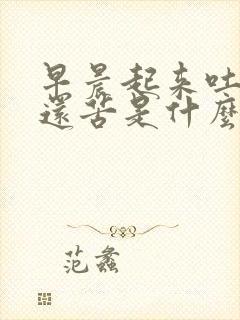 早晨起来吐
還苦是什麼
范蠡